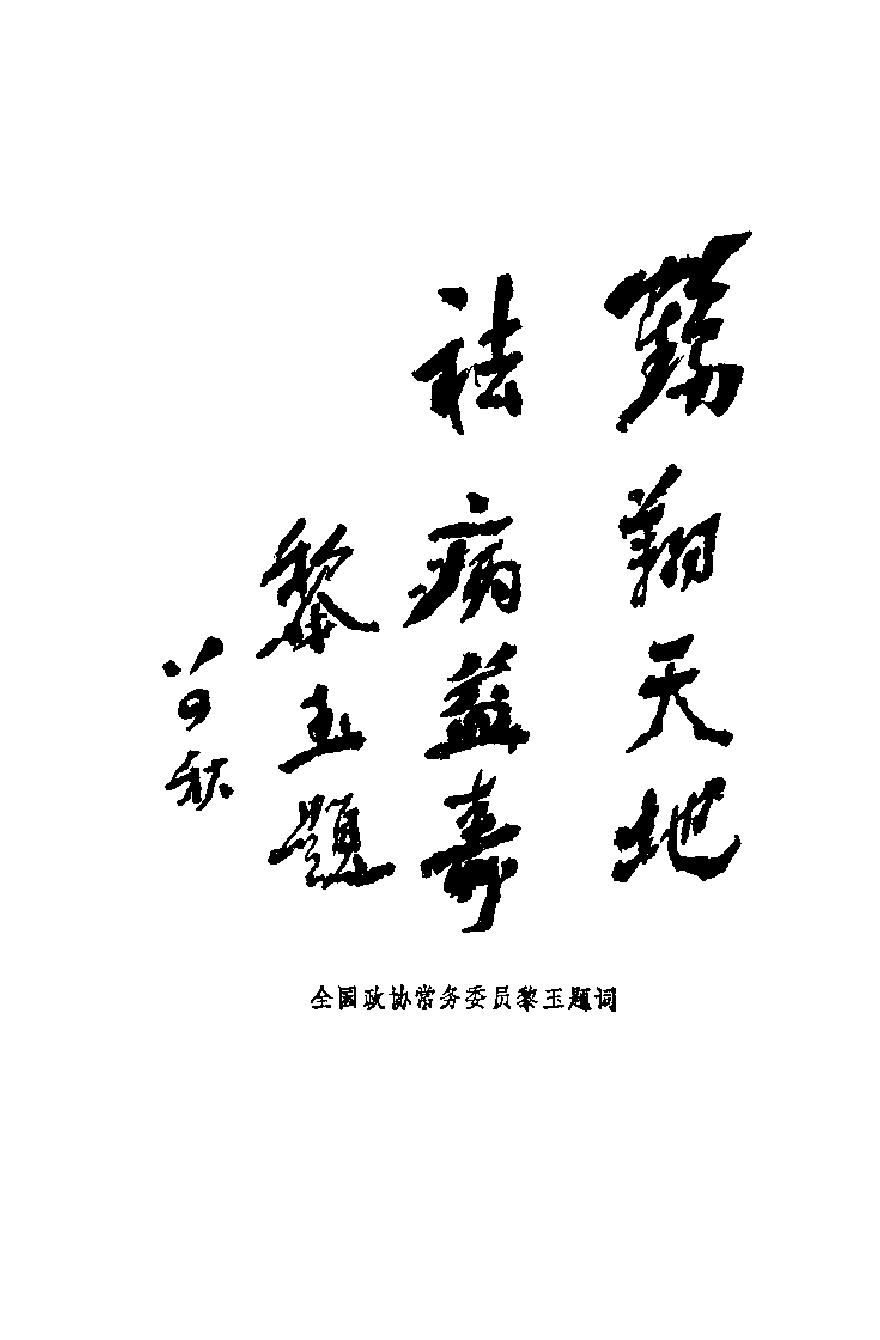 鹤翔天地
祛病益寿
黎玉题
秋
全国政协常务委员黎玉题词